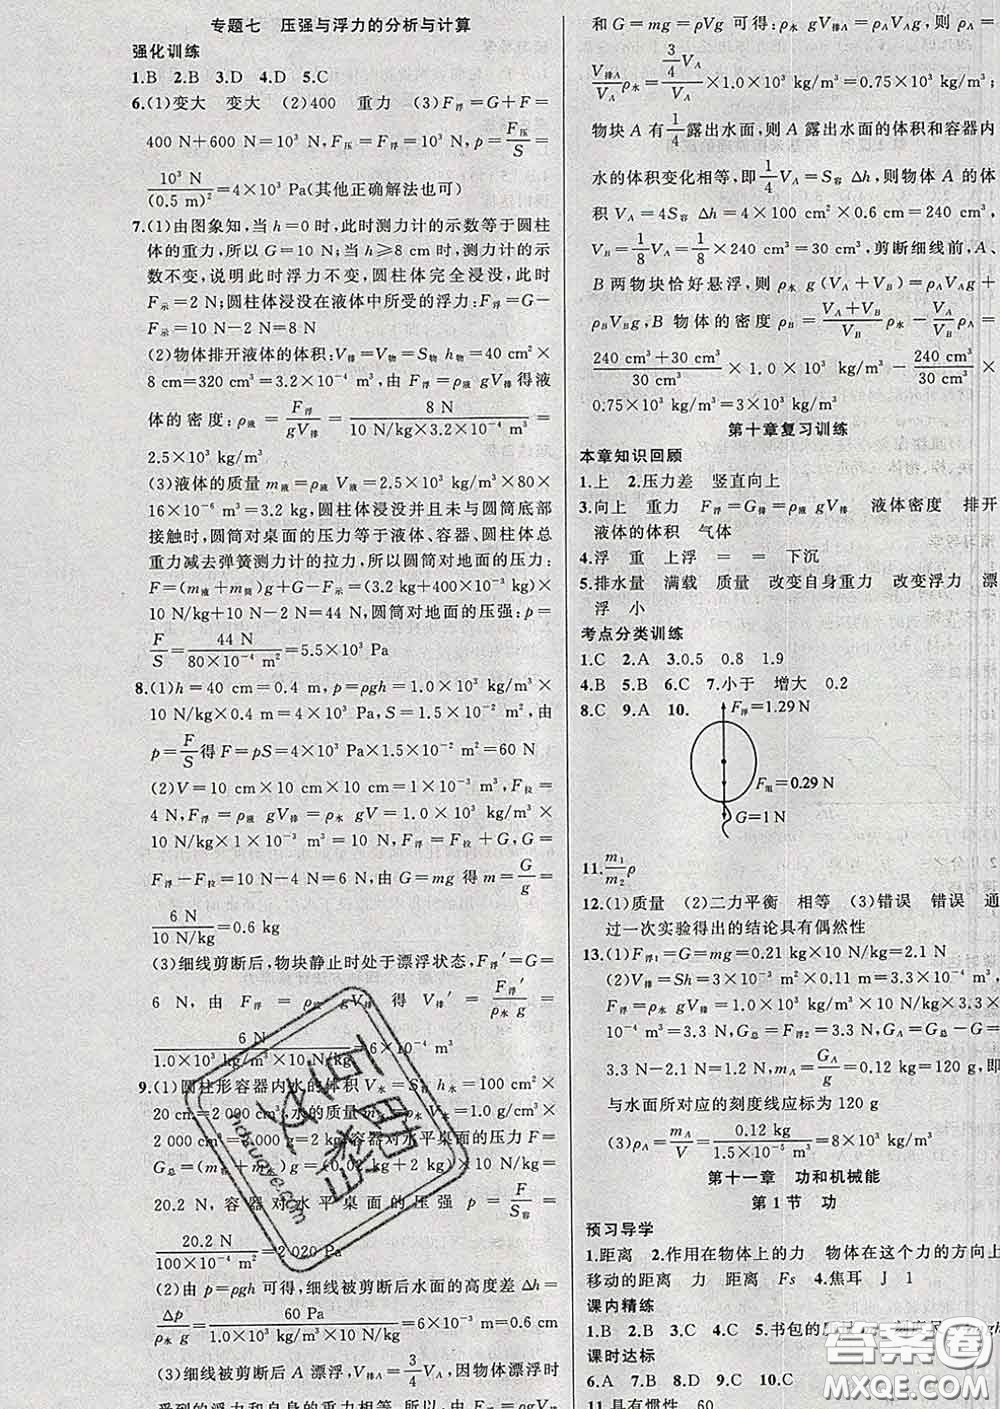 专题七 压强与浮力的分析与计算
强化训练
1.B 2.B 3.D 4.D 5.C
6.(1)变大 变大 (2)400 重力 (3)F浮=G+F=
400 N+600 N=10³ N,F压=F浮=10³ N,p=F压/S=
10³ N/(0.5 m)²=4×10³ Pa(其他正确解法也可)
7.(1)由图象知,当 h=0时,此时测力计的示数等于圆柱
体的重力,所以 G=10 N;当 h≥8 cm时,测力计的示
数不变,说明此时浮力不变,圆柱体完全浸没,此时
F示=2 N;圆柱体浸没在液体中所受的浮力:F浮=G-
F示=10 N-2 N=8 N
(2)物体排开液体的体积:V排=V物=S物 h物=40 cm²×
8 cm=320 cm³=3.2×10⁻⁴ m³,由 F浮=ρ液 gV排得液
体的密度:ρ液=F浮/gV排=8 N/(10 N/kg×3.2×10⁻⁴ m³)=
2.5×10³ kg/m³
(3)液体的质量 m液=ρ液 V液=2.5×10³ kg/m³×80×
16×10⁻⁶ m³=3.2 kg,圆柱体浸没并且未与圆筒底部
接触时,圆筒对桌面的压力等于液体、容器、圆柱体总
重力减去弹簧测力计的拉力,所以圆筒对地面的压力:
F=(m液+m筒)g+G-F示=(3.2 kg+400×10⁻³ kg)×
10 N/kg+10 N-2 N=44 N,圆筒对地面的压强:p=
F/S=44 N/(80×10⁻⁴ m²)=5.5×10³ Pa
8.(1)h=40 cm=0.4 m,p=ρgh=1.0×10³ kg/m³×10
N/kg×0.4 m=4×10³ Pa,S=1.5×10⁻² m²,由
p=F/S得 F=pS=4×10³ Pa×1.5×10⁻² m²=60 N
(2)V=10 cm×10 cm×10 cm=1×10⁻³ m³,F拉=
4 N,F浮=ρ液 gV排=ρ水 gV=1.0×10³ kg/m³×
10 N/kg×1×10⁻³ m³=10 N,F浮=F拉+G,G=
F浮-F拉=10 N-4 N=6 N,由 G=mg 得 m=G/g=
6 N/10 N/kg=0.6 kg
(3)细线剪断后,物块静止时处于漂浮状态,F浮′=G=
6 N,由 F浮=ρ水 gV排 得 V排′=F浮′/ρ水 g=
6 N/(1.0×10³ kg/m³×10 N/kg)=6×10⁻⁴ m³
9.(1)圆柱形容器内水的体积 V水=S容 h水=100 cm²×
20 cm=2 000 cm³,水的质量 m水=ρ水 V水=1.0 g/cm³
×2 000 cm³=2 000 g=2 kg,容器对水平桌面的压力 F=
G总=(m容+m水)g=(0.02 kg+2 kg)×10 N/kg=
20.2 N,容器对水平桌面的压强 p=F/S容=
20.2 N/(100×10⁻⁴ m²)=2 020 Pa
(2)由 p=ρgh 可得,细线被剪断后水面的高度差 Δh=
Δp/ρ水 g=60 Pa/(1.0×10³ kg/m³×10 N/kg)=6×10⁻³ m=0.6 cm
(3)细线被剪断后 A 漂浮,V排=3/4 V_A,因物体漂浮时
受到的浮力和自身的重力相等,所以由 F浮=ρgV排
和 G=mg=ρVg 可得 ρ水 gV排A=ρ_A V_A g,ρ_A=
V排A/V_A ρ水=(3/4 V_A)/V_A×1.0×10³ kg/m³=0.75×10³ kg/m³
物块 A 有1/4露出水面,则 A 露出水面的体积和容器内
水的体积变化相等,即1/4V_A=S容 Δh,则物体 A 的体
积 V_A=4S容 Δh=4×100 cm²×0.6 cm=240 cm³,
V_B=1/8V_A=1/8×240 cm³=30 cm³,剪断细线前,A、
B 两物块恰好悬浮,则 ρ水 g(V_A+V_B)=ρ_A V_A g+
ρ_B V_B g,B 物体的密度 ρ_B=(V_A+V_B)/V_B ρ水-V_A/V_B ρ_A=
(240 cm³+30 cm³)/30 cm³×1.0×10³ kg/m³-240 cm³/30 cm³×
0.75×10³ kg/m³=3×10³ kg/m³
第十章复习训练
本章知识回顾
1.上 2.压力差 竖直向上
3.向上 重力 F浮=G排=ρ液 gV排 液体密度 排开
液体的体积 气体
4.浮 重 上浮 = = 下沉
5.排水量 满载 质量 改变自身重力 改变浮力 漂
浮 小
考点分类训练
1.C 2.A 3.0.5 0.8 1.9
4.B 5.B 6.C 7.小于 增大 0.2
8.C 9.A 10.
F浮=1.29 N
F阻=0.29 N
G=1 N
11.m₁/m₂ ρ
12.(1)质量 (2)二力平衡 相等 (3)错误 错误 通
过一次实验得出的结论具有偶然性
13.(1)F浮1=G=mg=0.21 kg×10 N/kg=2.1 N
(2)V排=Sh=3×10⁻³ m²×0.11 m=3.3×10⁻⁴ m³
F浮=ρ水 gV排=1.0×10³ kg/m³×10 N/kg×3.3×
10⁻⁴ m³=3.3 N,G总=F浮2=3.3 N,G_A=G总-G=
3.3 N-2.1 N=1.2 N,m_A=G_A/g=0.12 kg=120 g,即
与水面所对应的刻度线应标为 120 g
(3)ρ_A=m_A/V=0.12 kg/(1.5×10⁻⁵ m³)=8×10³ kg/m³
第十一章 功和机械能
第1节 功
预习导学
1.距离 2.作用在物体上的力 物体在这个力的方向上
移动的距离 力 距离 Fs 4.焦耳 J 1
课内精练
1.B 2.B 3.C 4.C 5.书包的
课时达标
6.A 7.B 8.B 9.C 10.C
11.具有惯性 60
答案圈
MXQE.COM